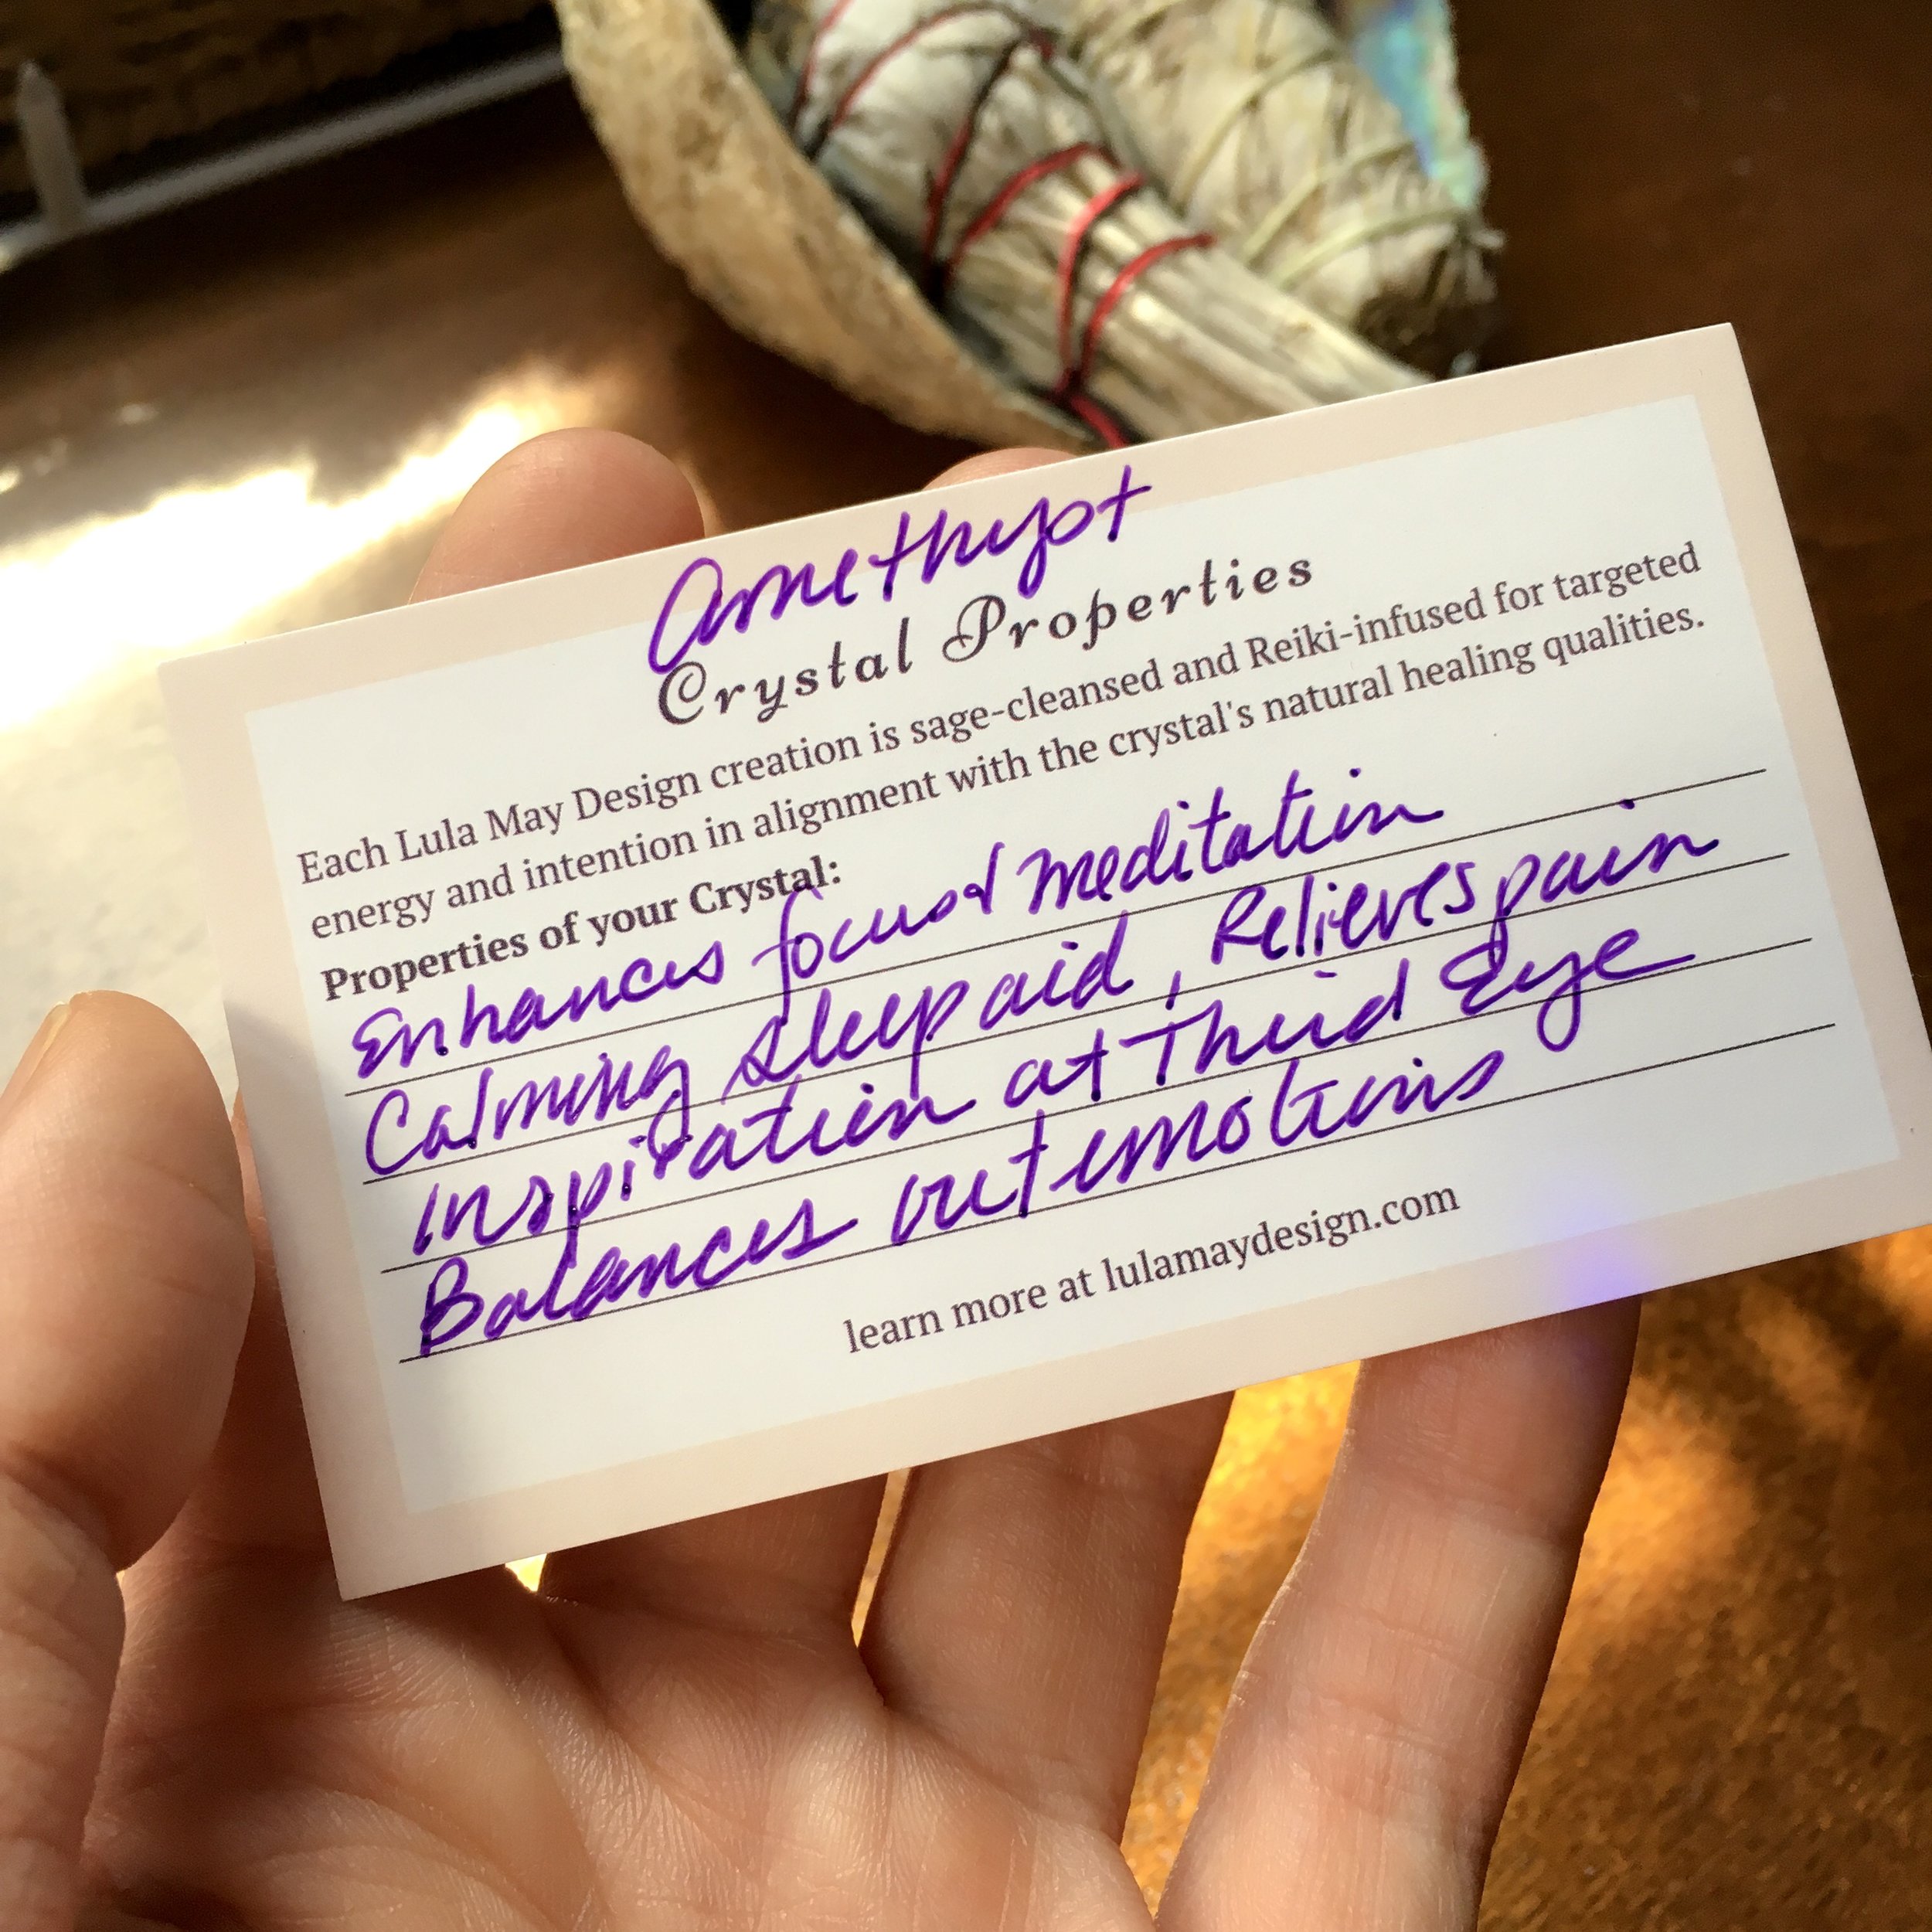 Amethyst
Crystal Properties
Each Lula May Design creation is sage-cleansed and Reiki-infused for targeted
energy and intention in alignment with the crystal's natural healing qualities.
Properties of your Crystal:
Enhances focus & meditation
Calming sleep aid, Relieves pain
Inspiration at Third Eye
Balances out emotions
learn more at lulamaydesign.com